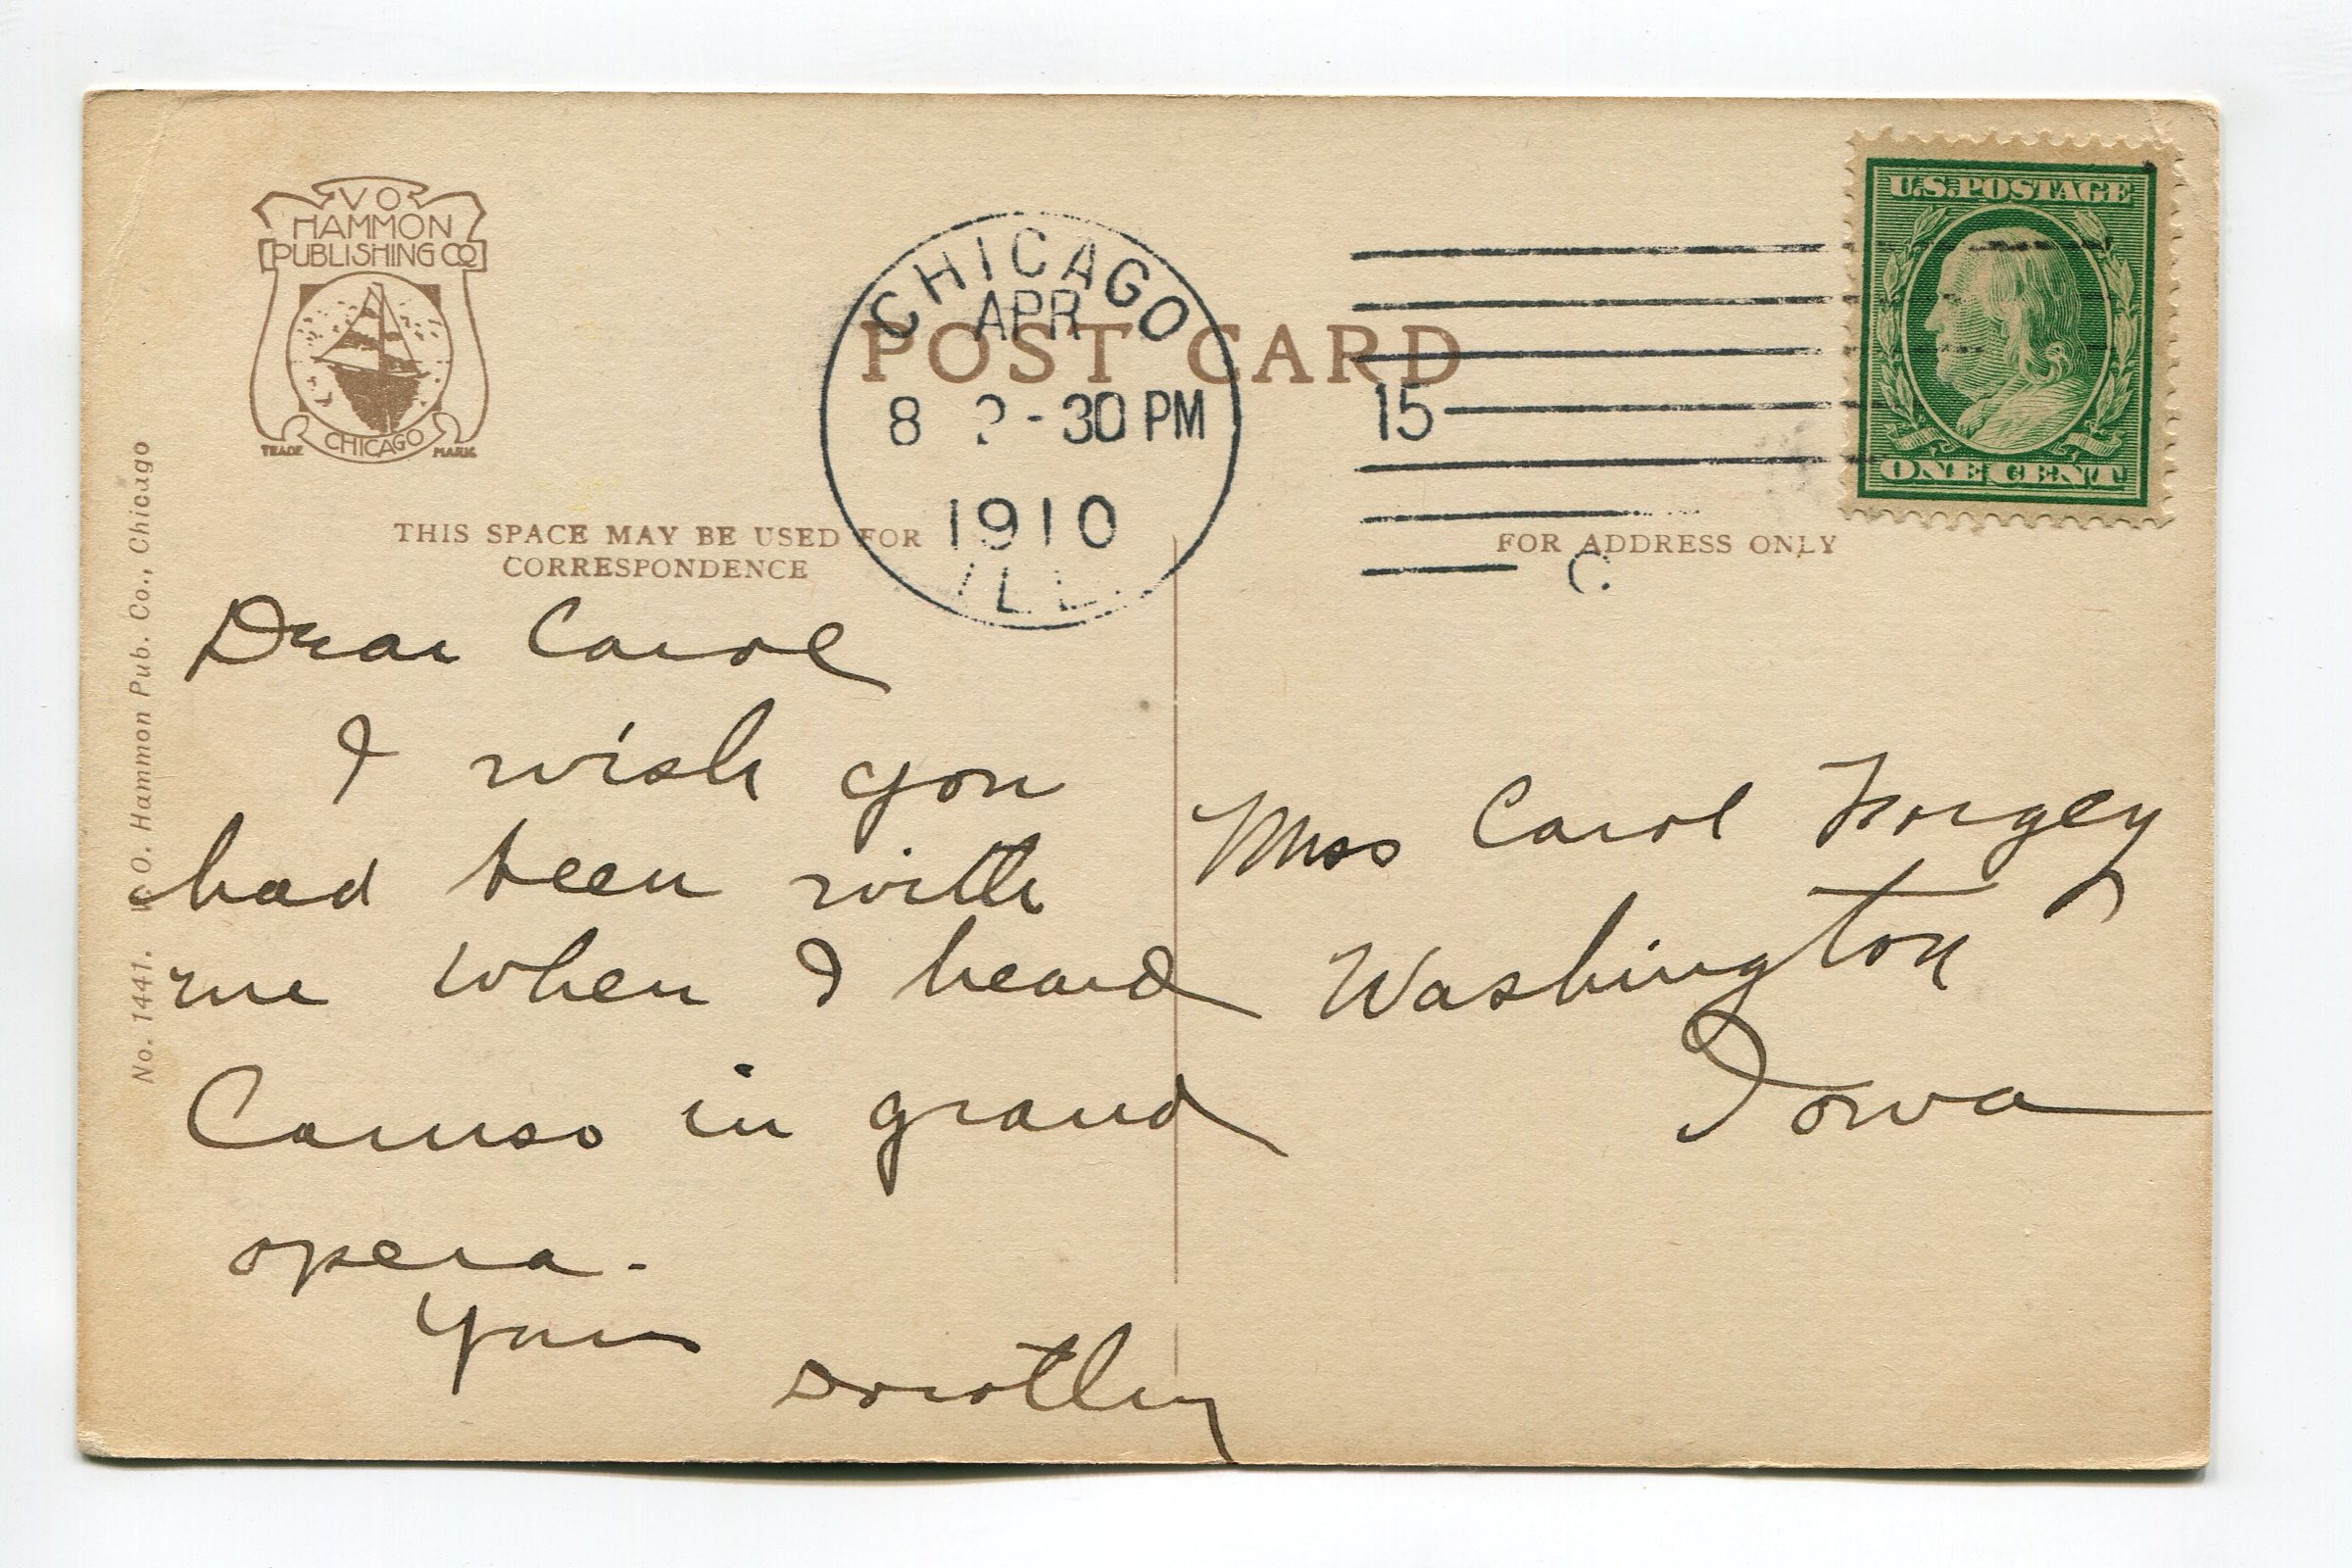 V O
HAMMON
PUBLISHING CO
CHICAGO
TRADE MARK
CHICAGO
APR
8 2-30 PM
1910
ILL.
15
C.
POST CARD
U.S. POSTAGE
ONE CENT
THIS SPACE MAY BE USED FOR
CORRESPONDENCE
FOR ADDRESS ONLY
No. 1441. V. O. Hammon Pub. Co., Chicago
Dear Carol
I wish you
had been with
me when I heard
Caruso in grand
opera.
Yours
Dorothy
Miss Carol Forgey
Washington
Iowa